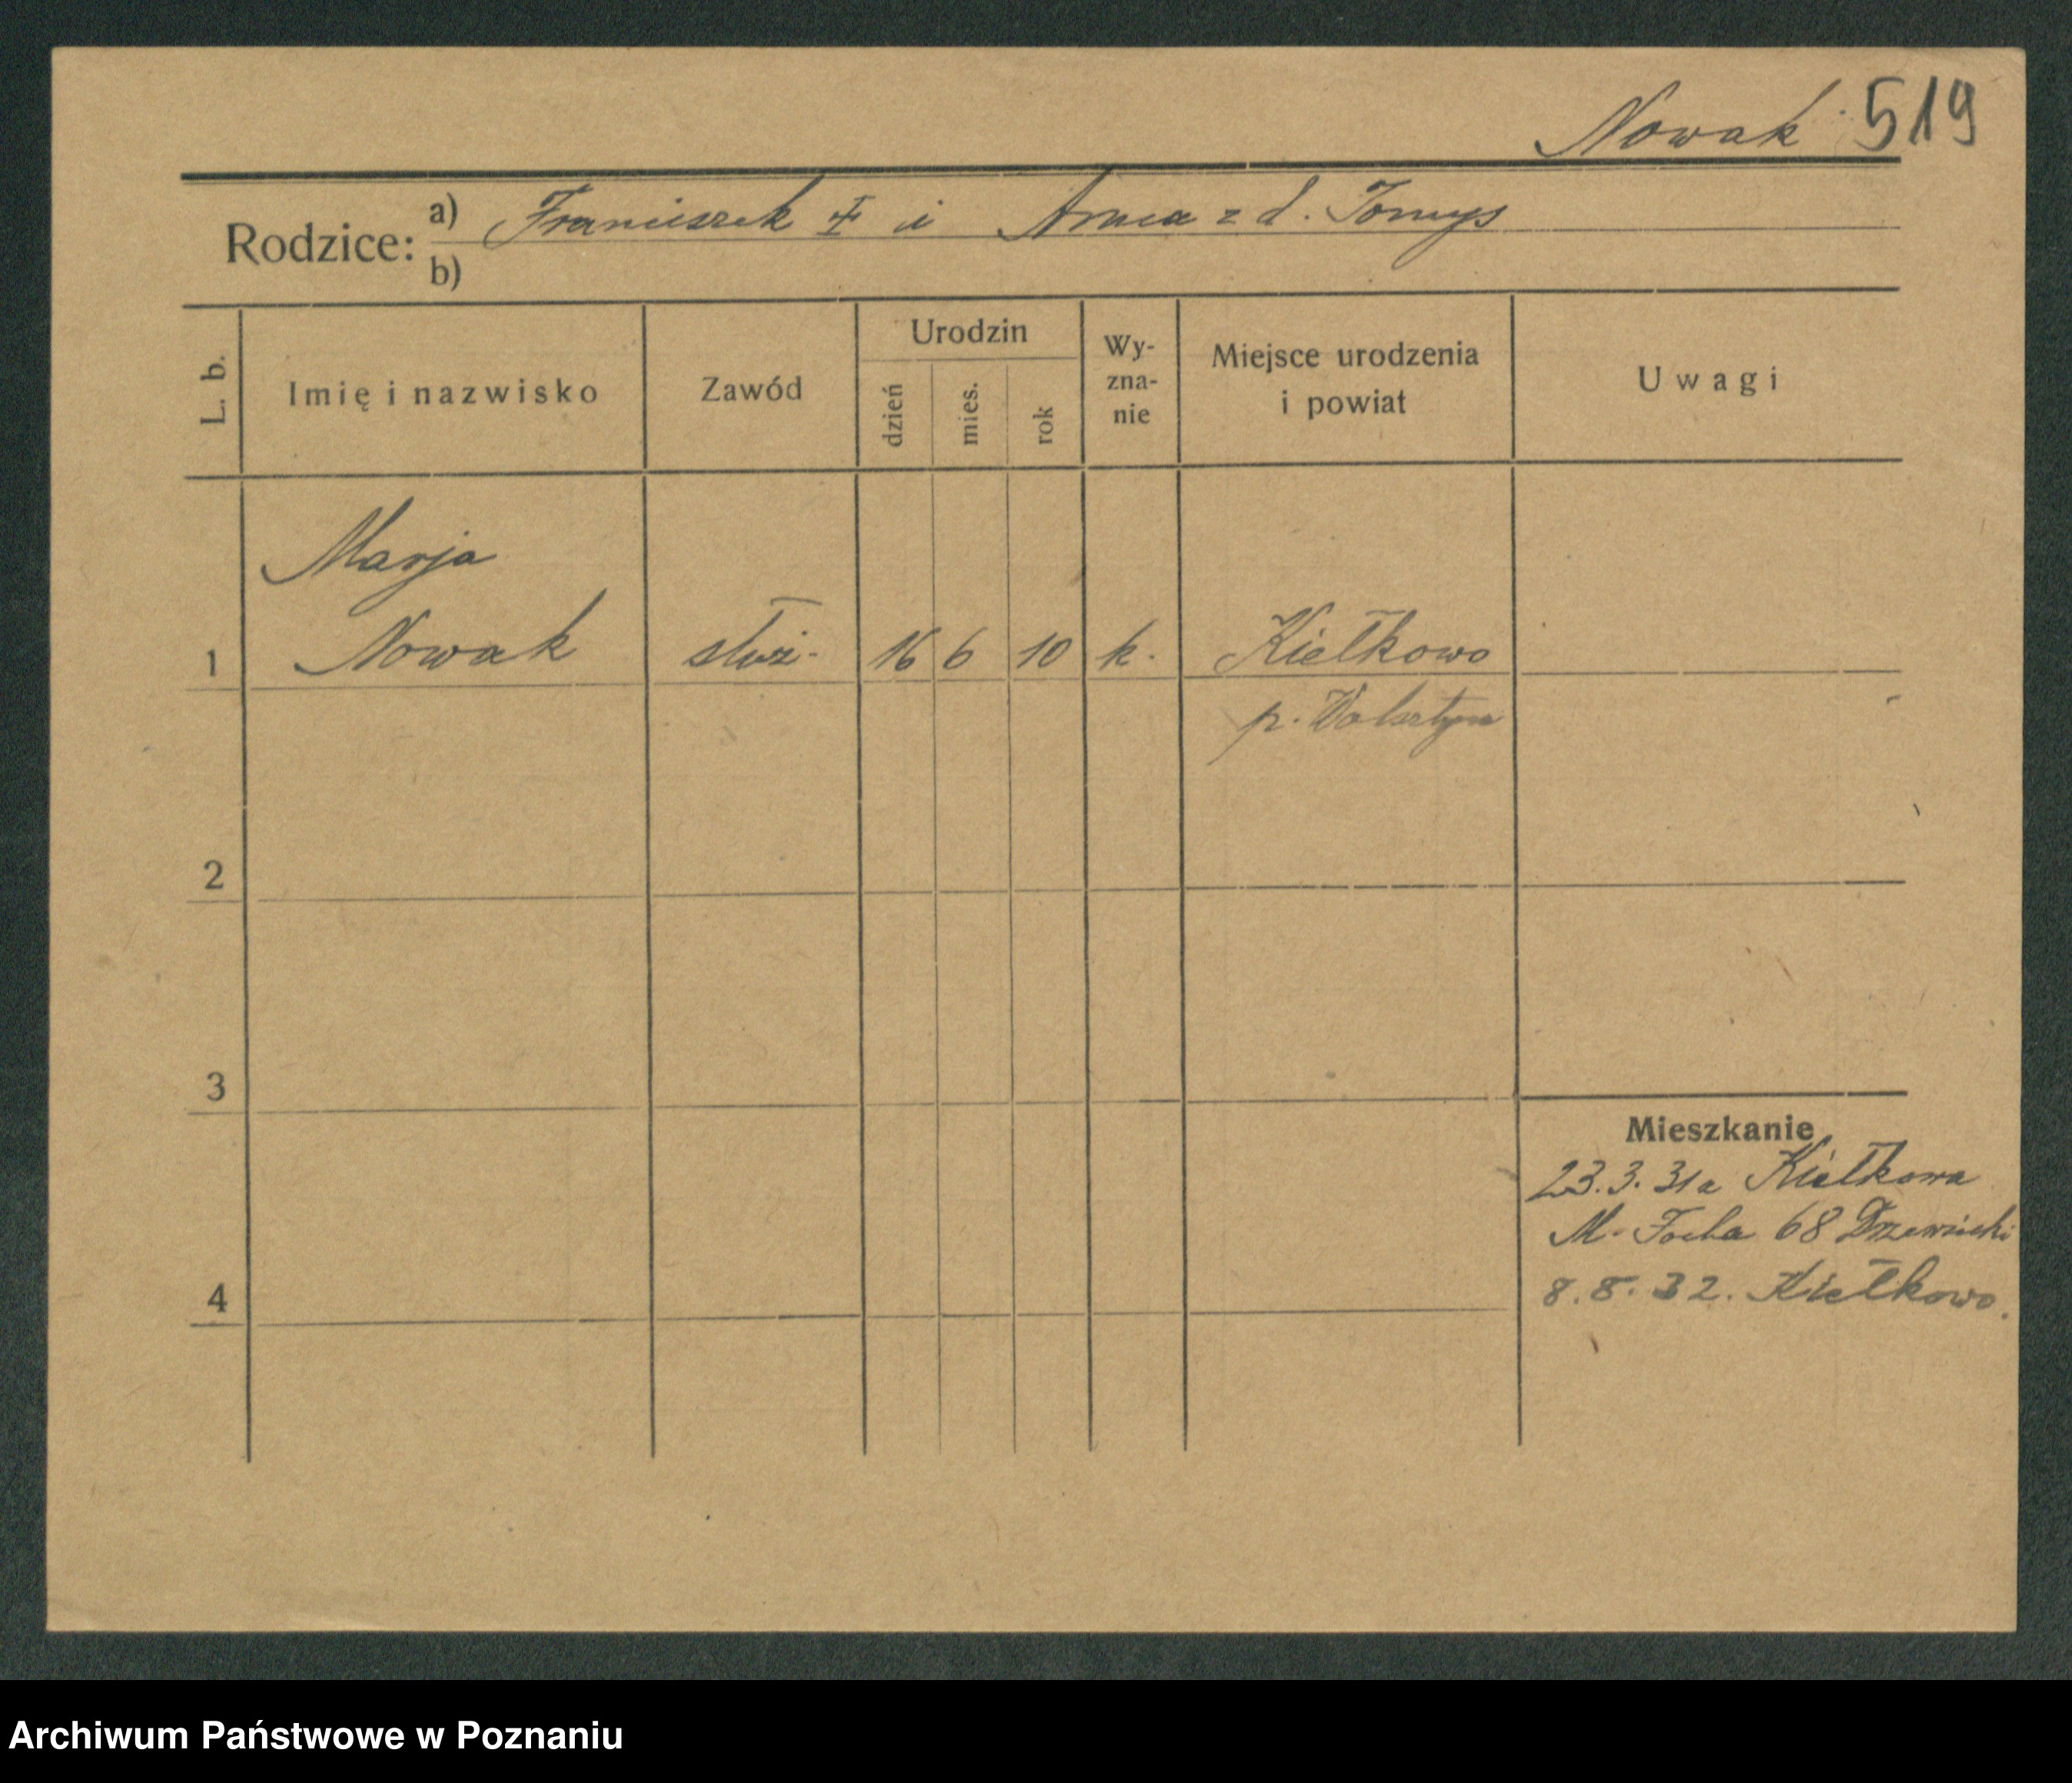 Nowak 519
Rodzice: a) Franciszek ‡ i Anna z d. Tomys
b)
L. b. Imię i nazwisko Zawód Urodzin dzień mies. rok Wy-zna-nie Miejsce urodzenia i powiat Uwagi
Marja
1 Nowak służ. 16 6 10 k. Kiełkowo
p. Wolsztyn
2
3
Mieszkanie
23.3.31 a Kiełkowa
M. Focha 68 Drzewiecki
4 8.8.32. Kiełkowo.
Archiwum Państwowe w Poznaniu